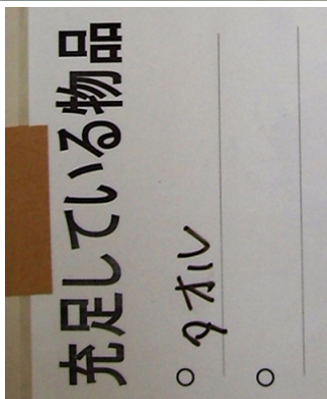 充足している物品
○ タオル
○